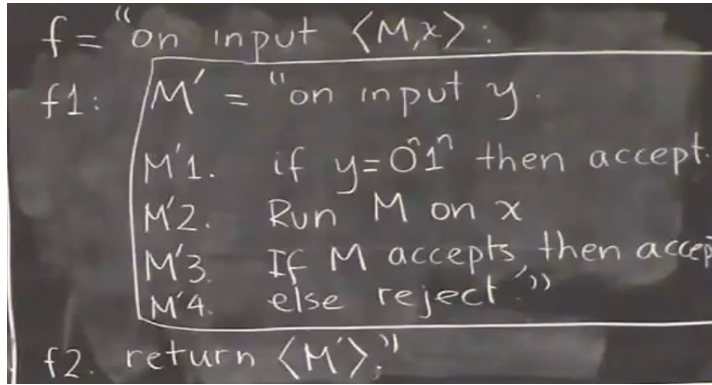 f = "on input ⟨M,x⟩:
f1: M' = "on input y.
M'1. if y=0ⁿ1ⁿ then accept.
M'2. Run M on x
M'3. If M accepts, then accep
M'4. else reject."
f2. return ⟨M'⟩."